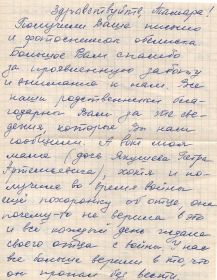 Здравствуйте, Тамара!
Получили Ваше письмо
и фотоснимок обелиска
Большое Вам спасибо
за проявленную заботу
и внимание к нам. Все
наши родственники бла-
годарны Вам за те све-
дения, которые Вы нам
сообщили. А вот моя
мама (дочь Якушева Петра
Артемьевича), хотя и по-
лучила во время войны
ещё похоронку на отца, она
почему-то не верила в это
и всё каждый день ждала
своего отца с войны. У нас
все больше верили в то, что
он пропал без вести